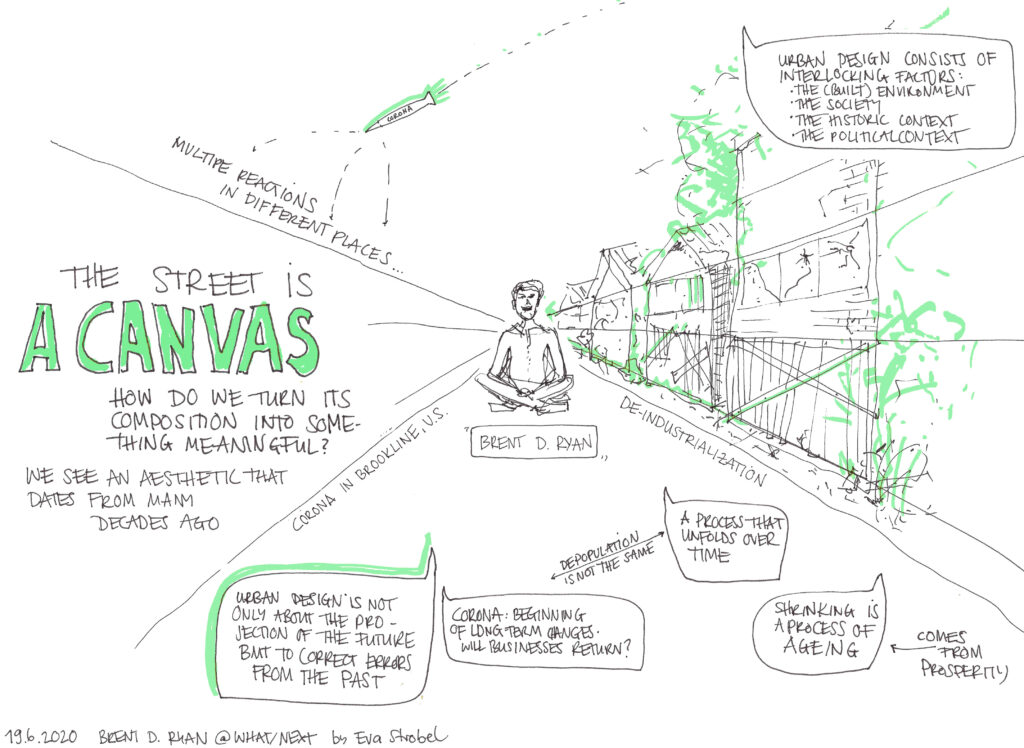 URBAN DESIGN CONSISTS OF
INTERLOCKING FACTORS:
·THE (BUILT) ENVIRONMENT
·THE SOCIETY
·THE HISTORIC CONTEXT
·THE POLITICAL CONTEXT
CORONA
MULTIPE REACTIONS
IN DIFFERENT PLACES...
THE STREET IS
A CANVAS
HOW DO WE TURN ITS
COMPOSITION INTO SOME-
THING MEANINGFUL?
WE SEE AN AESTHETIC THAT
DATES FROM MANY
DECADES AGO
CORONA IN BROOKLINE, U.S.
"BRENT D. RYAN"
DE-INDUSTRIALIZATION
A PROCESS THAT
UNFOLDS OVER
TIME
DEPOPULATION
IS NOT THE SAME
URBAN DESIGN IS NOT
ONLY ABOUT THE PRO-
JECTION OF THE FUTURE
BUT TO CORRECT ERRORS
FROM THE PAST
CORONA: BEGINNING
OF LONG TERM CHANGES.
WILL BUSINESSES RETURN?
SHRINKING IS
A PROCESS OF
AGEING
COMES
FROM
PROSPERITY
19.6.2020 BRENT D. RYAN @WHAT/NEXT by Eva Strobel